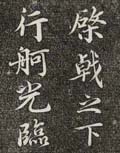 棨戟之下
行舸光臨